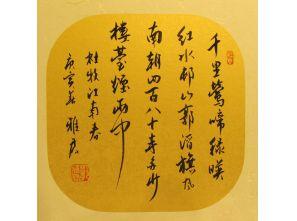 千里莺啼绿映
红水邨山郭酒旗风
南朝四百八十寺多少
楼台烟雨中
杜牧江南春
庚寅春 雅君